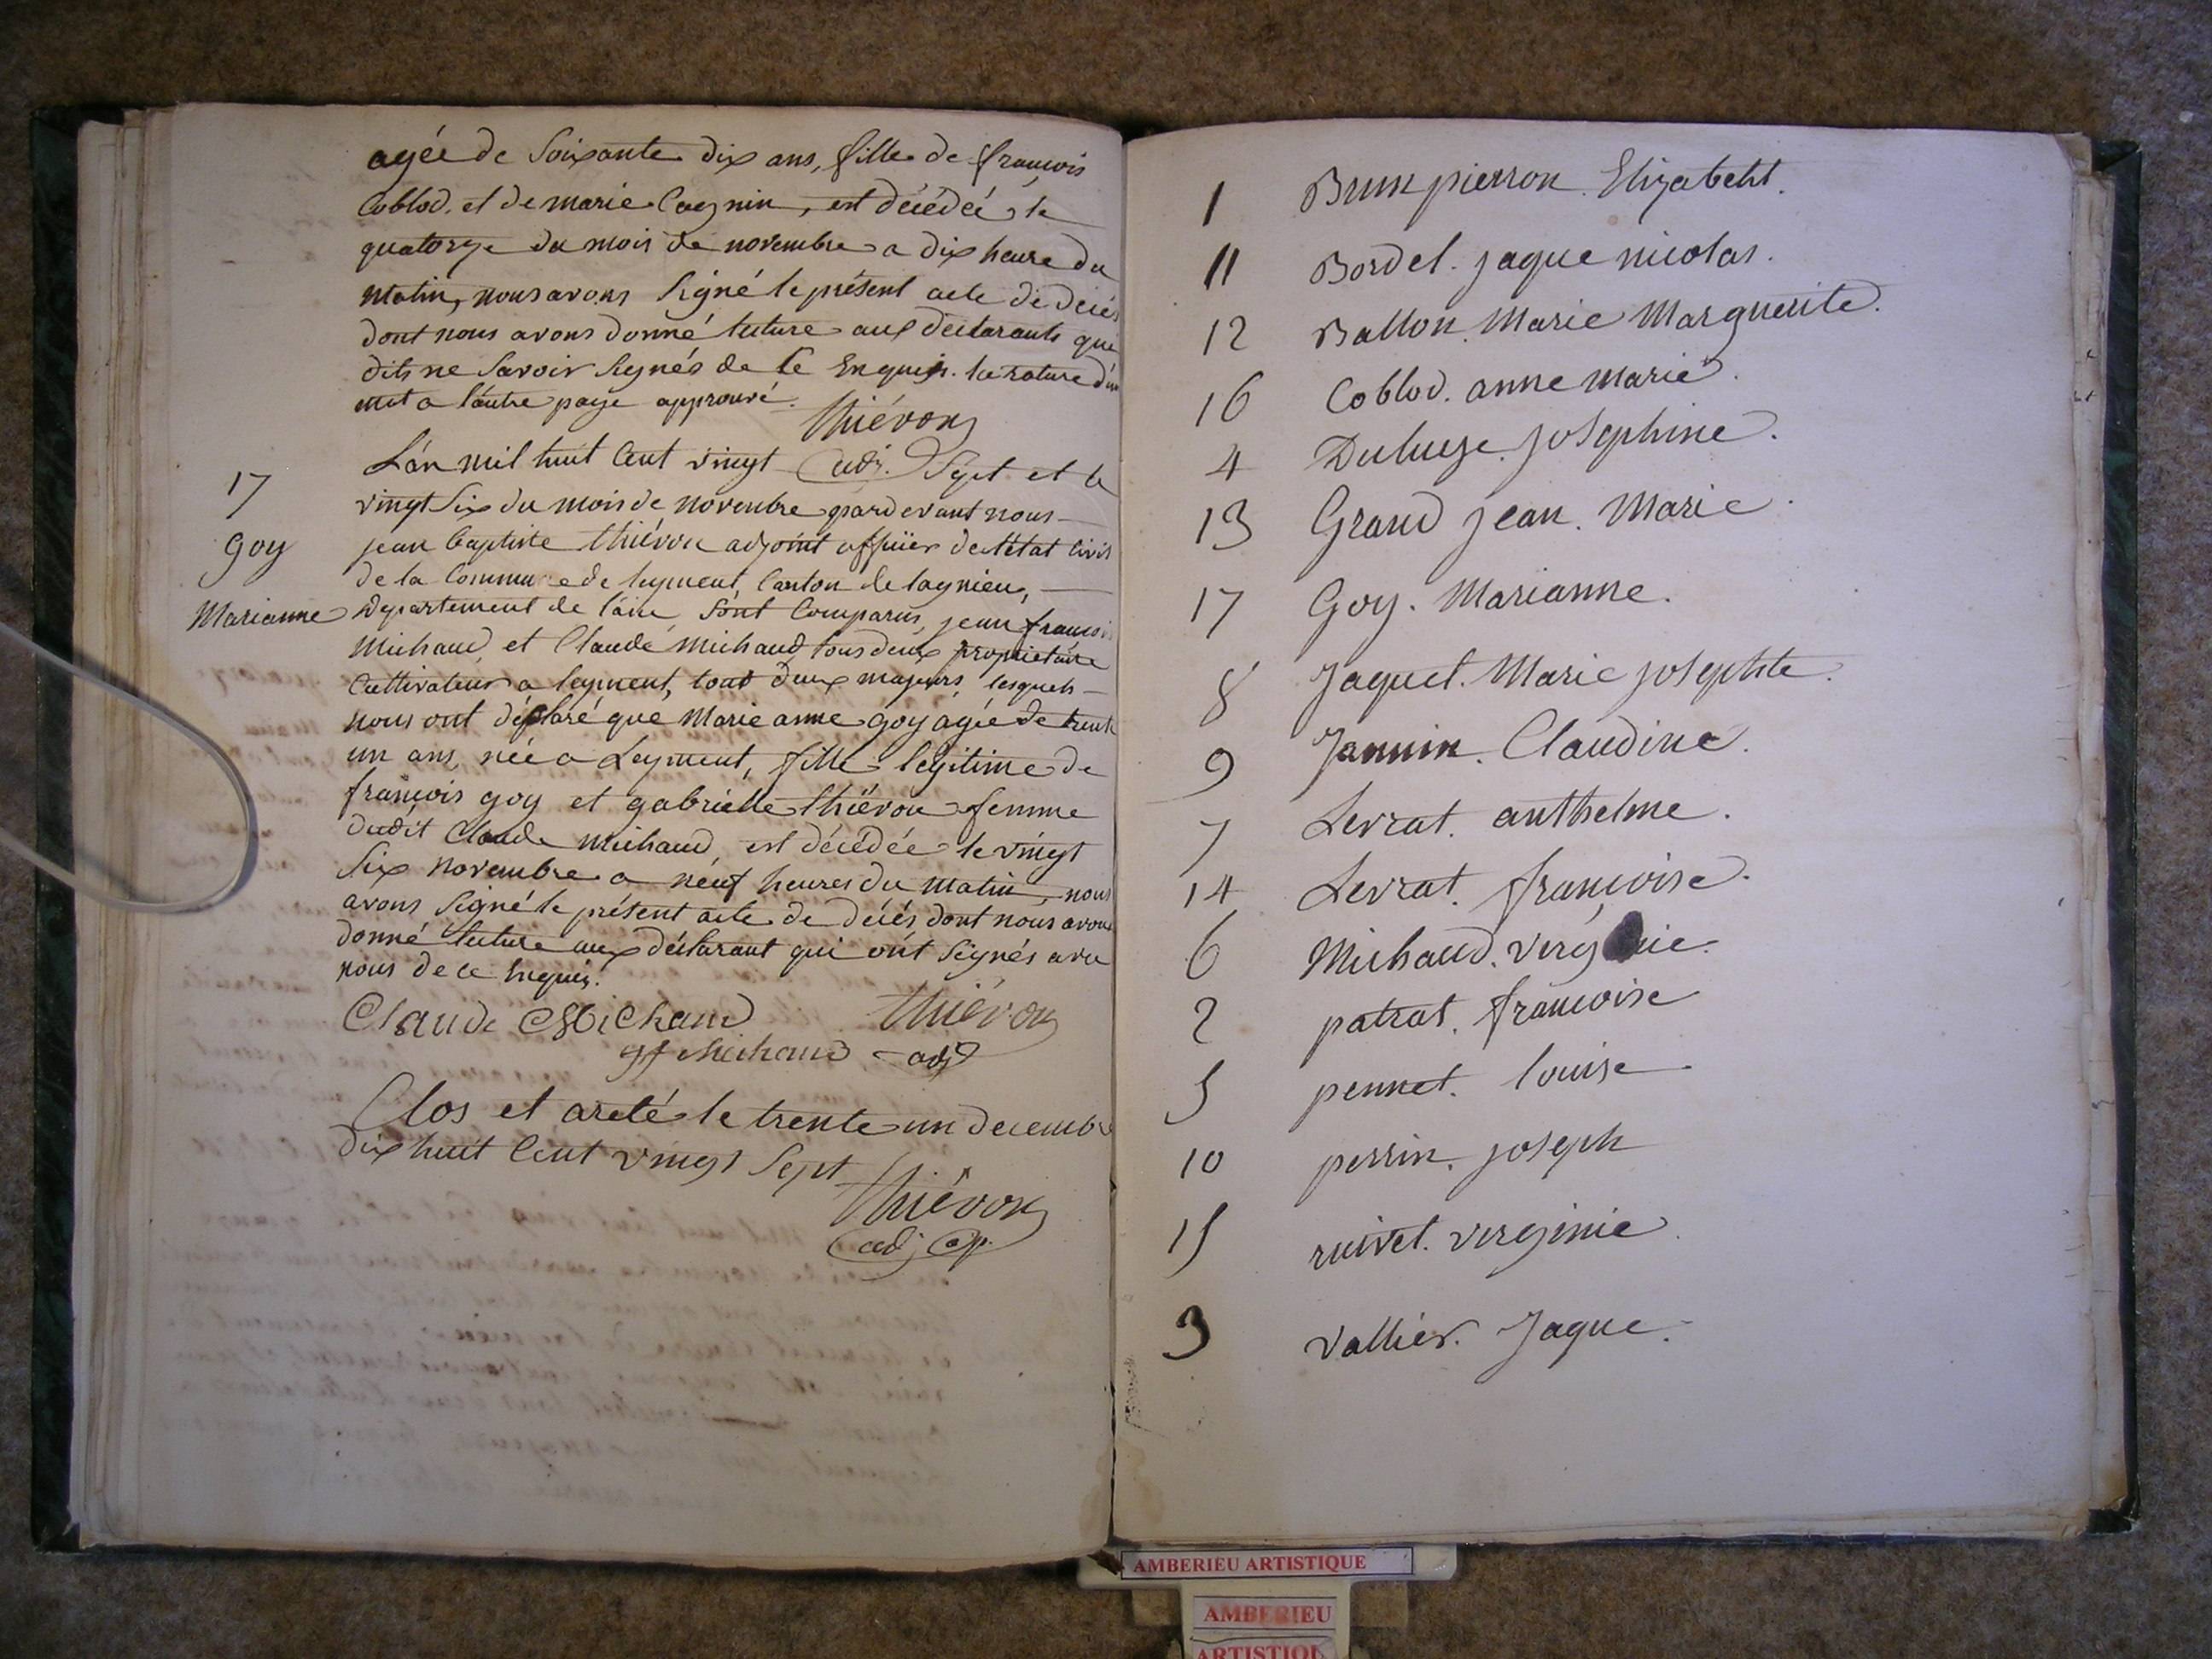 agée de Soixante dix ans, fille de françois
Coblod, et de marie Cagnin, est décédée le
quatorze du mois de novembre a dix heure du
matin, nous avons Signé le présent acte de décés
dont nous avons donné lecture aux declarants que
dits ne Savoir Signés de ce Enquis. la rature d'un
mot a l'autre page approuvé.
thiévon
adj.
17
goy
Marianne
L'an mil huit Cent vingt Sept et le
vingt Six du mois de novembre pardevant nous
jean baptiste thiévon adjoint officier de l'état Civil
de la Commune de leyment, Canton de lagnieu,
Departement de l'ain, Sont Comparus, jean francois
Michaud, et Claude Michaud tous deux propriétaire
Cultivateur a leyment, tout deux majeurs, lesquels
nous ont déclaré que Marie anne goy agée de trente
un ans, née a Leyment, fille légitime de
françois goy et gabrielle thiévon femme
dudit Claude Michaud est décédée le vingt
Six novembre a neuf heures du matin, nous
avons Signé le présent acte de décés, dont nous avons
donné lecture aux déclarant qui ont Signés avec
nous de ce Enquis.
Claude Michaud thiévon
jf Michaud adj
Clos et areté le trente un decembre
dix huit Cent vingt Sept
thiévon
adj
1 Brunpierron Elizabeht.
11 Bordel. jaque nicolas.
12 Ballon Marie Marguerite.
16 Coblod. anne marie.
4 Duluze. josephine.
13 Grand jean. Marie
17 Goy. Marianne.
8 Jaquet. Marie josephte.
9 Jannin. Claudine.
7 Levrat. anthelme.
14 Levrat. françoise.
6 Michaud. virginie.
2 patrat. francoise
5 pennet. louise
10 perrin. joseph
15 ruivet. virginie
3 Vallier. Jaque.
AMBERIEU ARTISTIQUE
AMBERIEU
ARTISTIQU